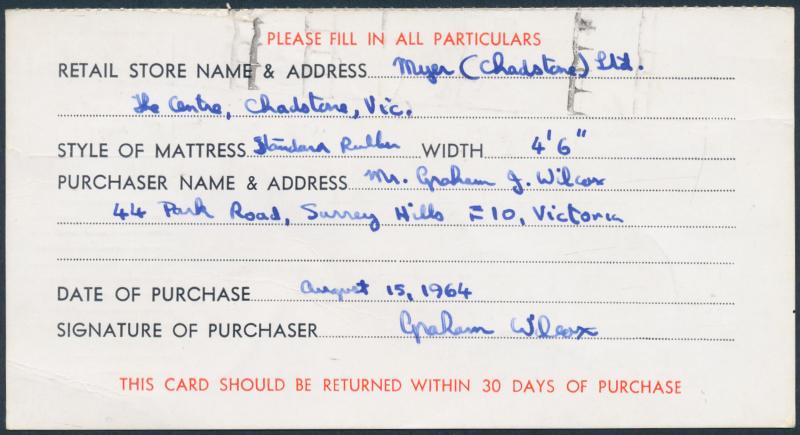 PLEASE FILL IN ALL PARTICULARS
RETAIL STORE NAME & ADDRESS Myer (Chadstone) Ltd.
The Centre, Chadstone, Vic.
STYLE OF MATTRESS Standard Rubber WIDTH 4'6"
PURCHASER NAME & ADDRESS Mr. Graham J. Wilcox
44 Park Road, Surrey Hills E10, Victoria
DATE OF PURCHASE August 15, 1964
SIGNATURE OF PURCHASER Graham Wilcox
THIS CARD SHOULD BE RETURNED WITHIN 30 DAYS OF PURCHASE